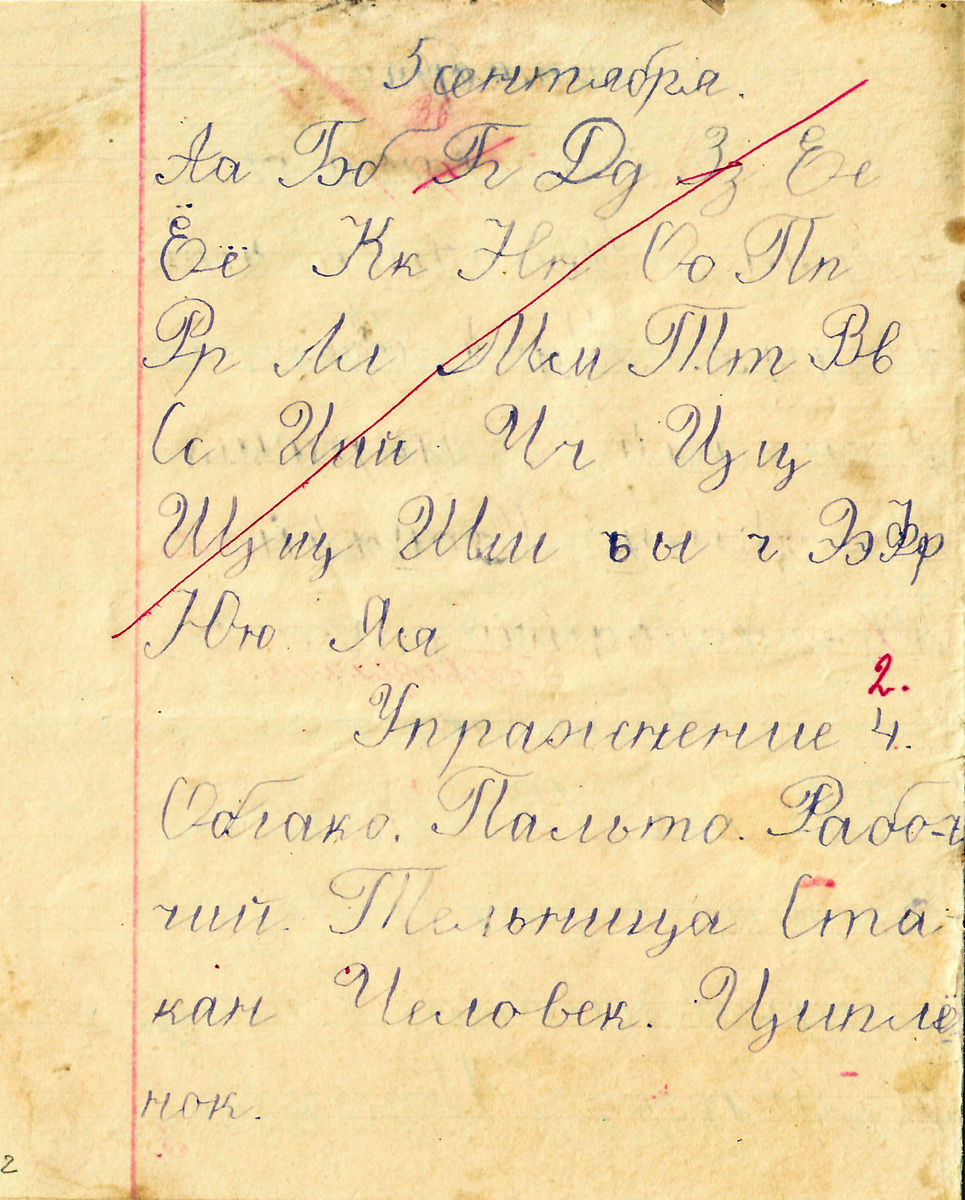 5 сентября.
Вв
Аа Бб Гг Дд Зз Ее
Ёё Кк Нн Оо Пп
Рр Лл Мм Тт Вв
Сс Ии й Чч Цц
Щщ Шш ъ ы ч Ээ Фф
Юю Яя
2.
Упражнение 4.
Облако. Пальто. Рабо-
чий. Тельница Ста-
кан Человек. Циплё
нок.
2